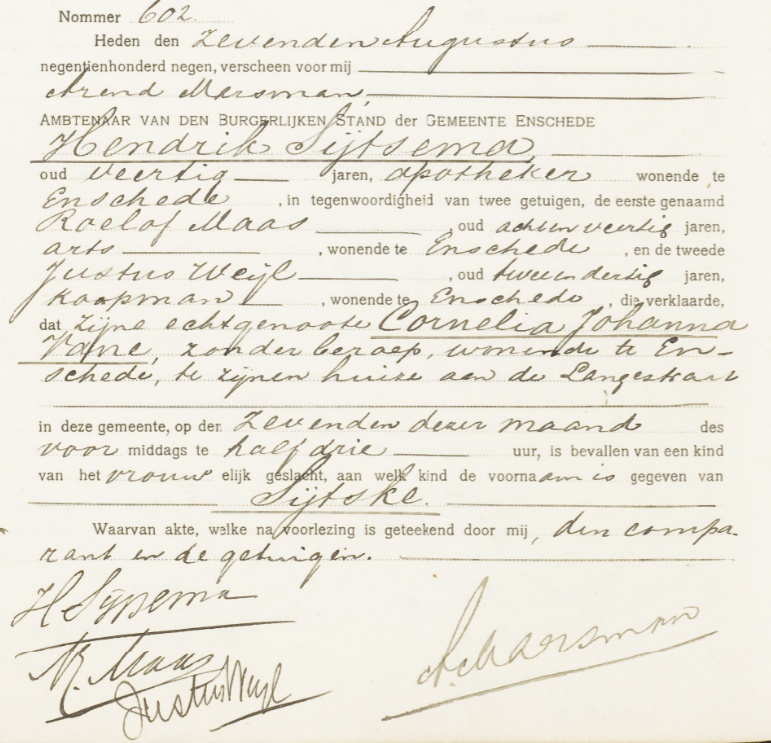 Nommer 602.
Heden den zevenden Augustus
negentienhonderd negen, verscheen voor mij
Arend Marsman,
AMBTENAAR VAN DEN BURGERLIJKEN STAND der GEMEENTE ENSCHEDE
Hendrik Sijtsema,
oud veertig jaren, apotheker wonende te
Enschede, in tegenwoordigheid van twee getuigen, de eerste genaamd
Roelof Maas, oud achtenveertig jaren,
arts, wonende te Enschede, en de tweede
Justus Weijl, oud tweeendertig jaren,
koopman, wonende te Enschede, die verklaarde,
dat zijne echtgenoote Cornelia Johanna
Vane, zonder beroep, wonende te En-
schede, te zijnen huize aan de Langestraat
in deze gemeente, op den zevenden dezer maand des
voor middags te half drie uur, is bevallen van een kind
van het vrouwelijk geslacht, aan welk kind de voornaam is gegeven van
Sijtske.
Waarvan akte, welke na voorlezing is geteekend door mij, den compa-
rant en de getuigen.
H Sijtsema
R. Maas
A. Marsman
Justus Weijl